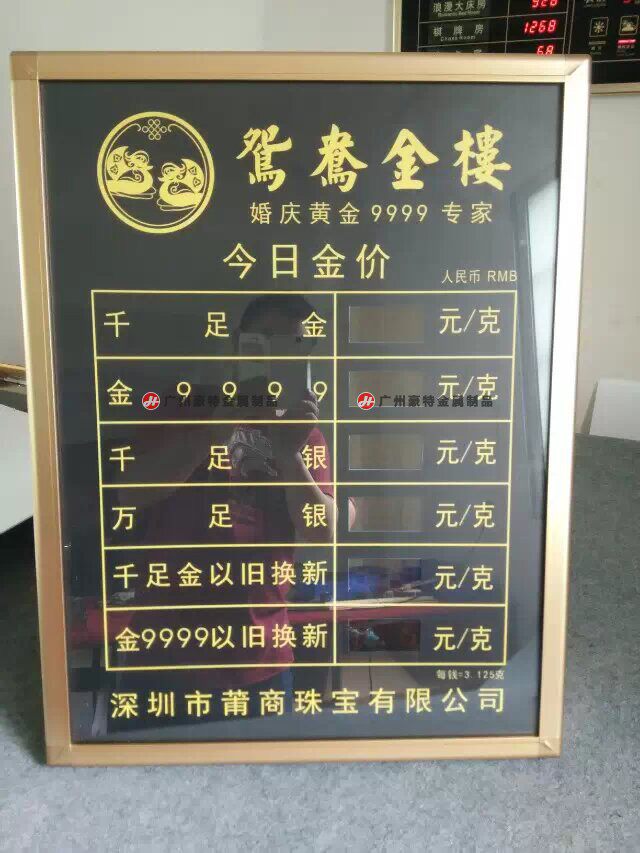 浪漫大床房 928
棋牌房 1268
68
鸳鸯金楼
婚庆黄金9999专家
今日金价
人民币 RMB
千足金 元/克
金9999 元/克
广州豪特金属制品 广州豪特金属制品
千足银 元/克
万足银 元/克
千足金以旧换新 元/克
金9999以旧换新 元/克
每钱=3.125克
深圳市莆商珠宝有限公司